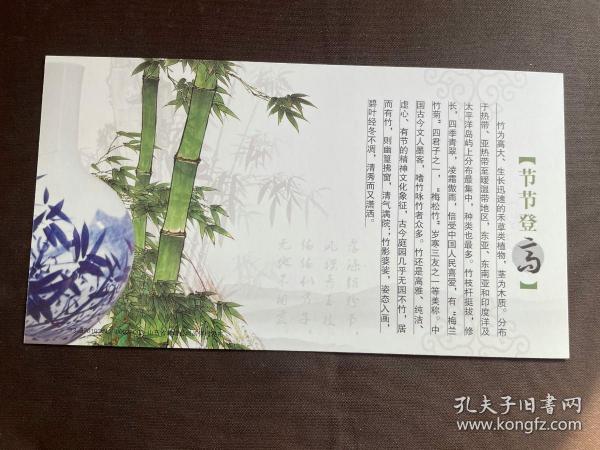 【节节登高】
竹为高大、生长迅速的禾草类植物，茎为木质。分布
于热带、亚热带至暖温带地区，东亚、东南亚和印度洋及
太平洋岛屿上分布最集中，种类也最多。竹枝杆挺拔，修
长，四季青翠，凌霜傲雨，倍受中国人民喜爱，有“梅兰
竹菊”四君子之一，“梅松竹”岁寒三友之一等美称。中
国古今文人墨客，嗜竹咏竹者众多。竹还是高雅、纯洁、
虚心、有节的精神文化象征，古今庭园几乎无园不竹，居
而有竹，则幽篁拂窗，清气满院；竹影婆娑，姿态入画，
碧叶经冬不凋，清秀而又潇洒。
孔夫子旧书网
www.kongfz.com